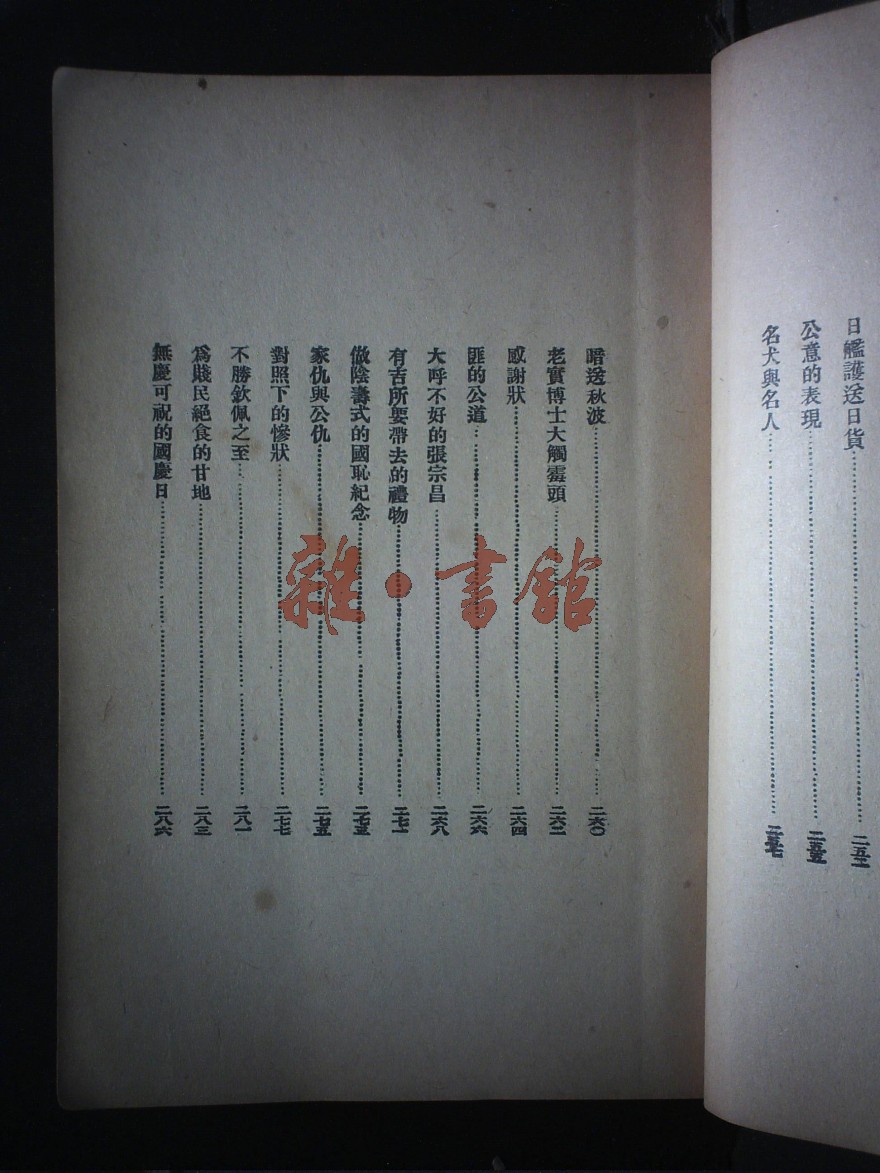 日艦護送日貨……二五二
公意的表現……二五五
名犬與名人……二五七
暗送秋波……二六〇
老實博士大觸霉頭……二六二
感謝狀……二六四
匪的公道……二六六
大呼不好的張宗昌……二六八
有吉所要帶去的禮物……二七一
做陰壽式的國恥紀念……二七三
家仇與公仇……二七五
對照下的慘狀……二七七
不勝欽佩之至……二八一
爲賤民絕食的甘地……二八三
無慶可祝的國慶日……二八六
雜·書館